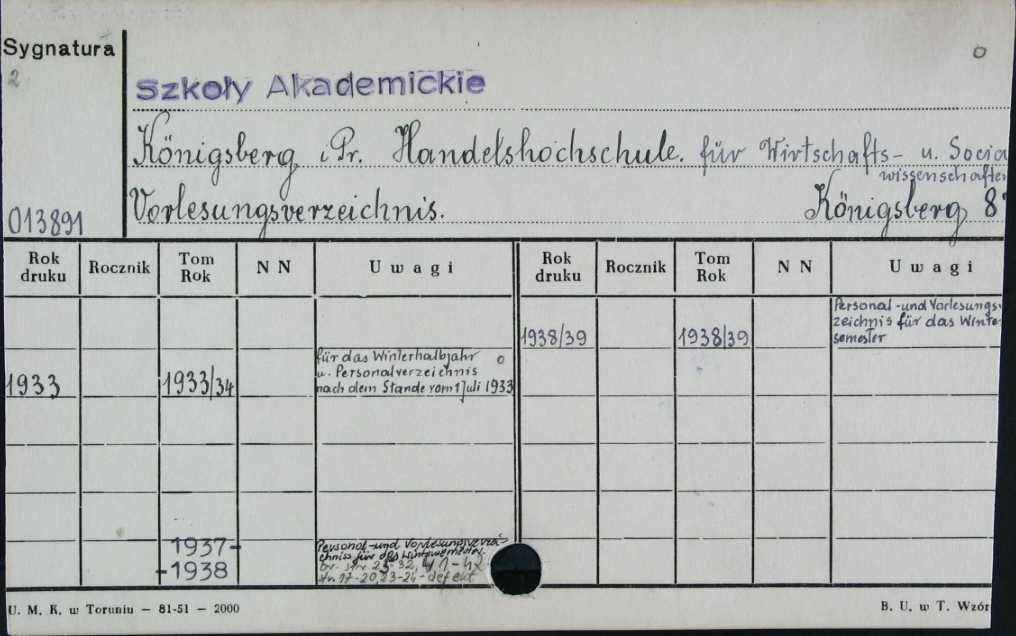 Sygnatura
2
o
Szkoły Akademickie
Königsberg i Pr. Handelshochschule. für Wirtschafts- u. Socia
wissenschaften
013891
Vorlesungsverzeichnis. Königsberg 8°
Rok druku Rocznik Tom Rok N N Uwagi Rok druku Rocznik Tom Rok N N Uwagi
1938/39 1938/39 Personal-und Vorlesungsver
zeichnis für das Winter
semester
1933 1933/34 für das Winterhalbjahr o
u. Personalverzeichnis
nach dem Stande vom 1 Juli 1933
1937-
-1938
Personal-und Vorlesungsverzei-
chniss für das Wintersemester.
str. 25-32, 41-42
str. 17-20, 23-24-defekt
U. M. K. w Toruniu — 81-51 — 2000
B. U. w T. Wzór